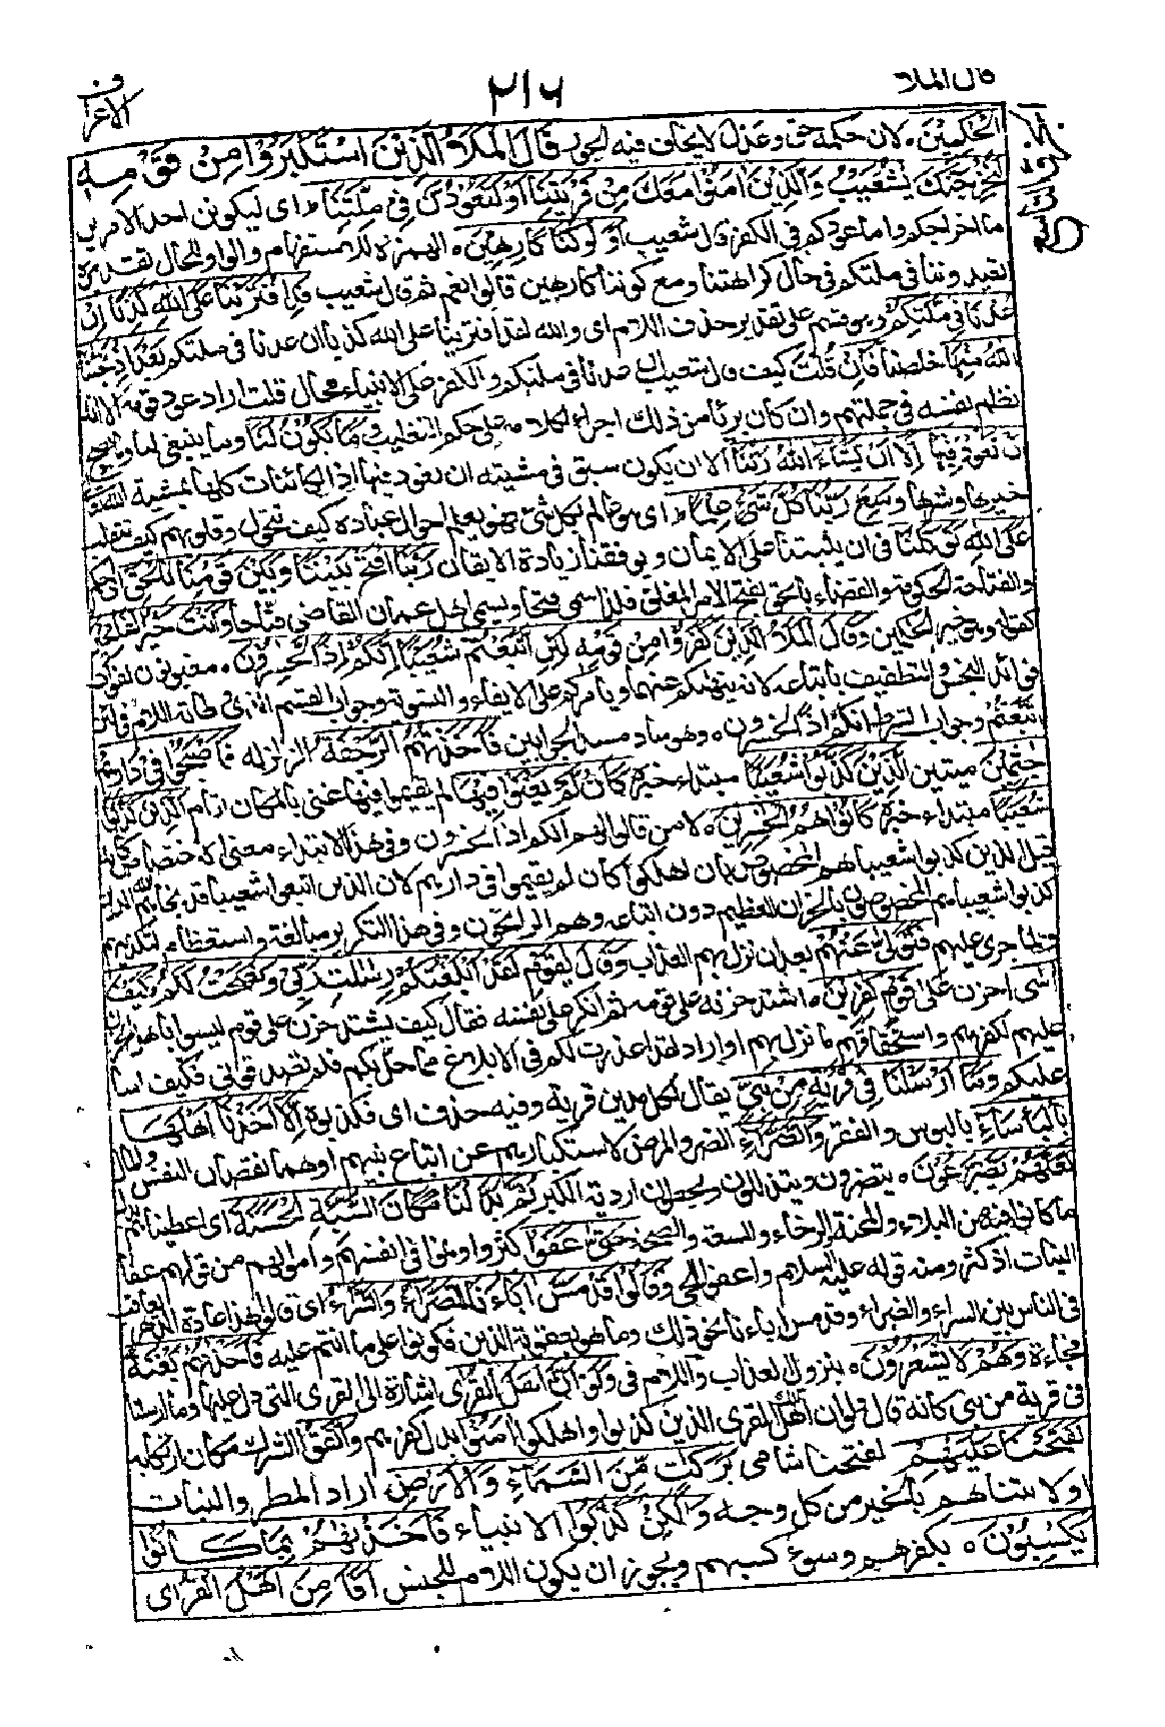 قال الملا
٢١٦
الاعراف
الحٰكمين ۰ لان حكمه حق وعدل لا يخاف فيه الجور قَالَ الْمَلَاُ الَّذِيْنَ اسْتَكْبَرُوْا مِنْ قَوْمِهٖ
لَنُخْرِجَنَّكَ يٰشُعَيْبُ وَالَّذِيْنَ اٰمَنُوْا مَعَكَ مِنْ قَرْيَتِنَا اَوْ لَتَعُوْدُنَّ فِيْ مِلَّتِنَا اى ليكونن احد الامرين
اما اخراجكم واما عودكم فى الكفر قال شعيب اَوَلَوْ كُنَّا كَارِهِيْنَ ۰ الهمزة للاستفهام والواو للحال تقديره
اتعيدوننا فى ملتكم فى حال كراهتنا ومع كوننا كارهين قالوا نعم ثم قال شعيب قَدِ افْتَرَيْنَا عَلَى اللّٰهِ كَذِبًا اِنْ
عُدْنَا فِيْ مِلَّتِكُمْ وهو قسم على تقدير حذف اللام اى والله لقد افترينا على الله كذبا ان عدنا فى ملتكم بَعْدَ اِذْ نَجّٰنَا
اللّٰهُ مِنْهَا خلصنا فان قلت كيف قال شعيب ان عدنا فى ملتكم والكفر على الانبياء محال قلت اراد عود قومه الا انه
نظم نفسه فى جملتهم وان كان بريئا من ذلك اجراء لكلامه على حكم التغليب وَمَا يَكُوْنُ لَنَا وما ينبغى لنا وما يصح
اَنْ نَّعُوْدَ فِيْهَا اِلَّا اَنْ يَّشَآءَ اللّٰهُ رَبُّنَا الا ان يكون سبق فى مشيته ان نعود فيها اذ الكائنات كلها بمشية الله
خيرها وشرها وَسِعَ رَبُّنَا كُلَّ شَيْءٍ عِلْمًا اى هو عالم بكل شئ فهو يعلم احوال عباده كيف تتحول وقلوبهم كيف تتقلب
عَلَى اللّٰهِ تَوَكَّلْنَا فى ان يثبتنا على الايمان ويوفقنا لزيادة الايقان رَبَّنَا افْتَحْ بَيْنَنَا وَبَيْنَ قَوْمِنَا بِالْحَقِّ اى احكم
والفتاحة الحكومة والقضاء بالحق يفتح الامر المغلق فلذا سمى فتحا ويسمى اهل عمان القاضى فتاحا وَاَنْتَ خَيْرُ الْفٰتِحِيْنَ
كقوله وهو خير الحكمين وَقَالَ الْمَلَاُ الَّذِيْنَ كَفَرُوْا مِنْ قَوْمِهٖ لَئِنِ اتَّبَعْتُمْ شُعَيْبًا اِنَّكُمْ اِذًا لَّخٰسِرُوْنَ ۰ مغبونون لفوات
فوائد البخس والتطفيف باتباعه لانه ينهٰكم عنهما ويامركم على الايفاء والتسوية وجواب القسم الذى وطأته اللام فى لئن
اتبعتم وجواب الشرط انكم اذا لخسرون ۰ وهو ساد مسد الجوابين فَاَخَذَتْهُمُ الرَّجْفَةُ الزلزلة فَاَصْبَحُوْا فِيْ دَارِهِمْ
جٰثِمِيْنَ ميتين الَّذِيْنَ كَذَّبُوْا شُعَيْبًا مبتداء خبره كَاَنْ لَّمْ يَغْنَوْا فِيْهَا لم يقيموا فيها غنى بالمكان اقام اَلَّذِيْنَ كَذَّبُوْا
شُعَيْبًا مبتداء خبره كَانُوْا هُمُ الْخٰسِرِيْنَ ۰ لا من قالوا لهم انكم اذا لخسرون وفى هذا الابتداء معنى الاختصاص كانه
قيل الذين كذبوا شعيبا هم المخصوصون بان اهلكوا كان لم يقيموا فى دارهم لان الذين اتبعوا شعيبا قد نجاهم الله الذين
كذبوا شعيبا هم المخصوصون بالخسران العظيم دون اتباعه وهم الرابحون وفى هذا التكرير مبالغة واستعظام لتكذيبهم
ولما جرى عليهم فَتَوَلّٰى عَنْهُمْ بعد ان نزل بهم العذاب وَقَالَ يٰقَوْمِ لَقَدْ اَبْلَغْتُكُمْ رِسٰلٰتِ رَبِّيْ وَنَصَحْتُ لَكُمْ فَكَيْفَ
اٰسٰى احزن عَلٰى قَوْمٍ كٰفِرِيْنَ ۰ اشتد حزنه على قومه ثم انكر على نفسه فقال كيف يشتد حزنى على قوم ليسوا باهل للحزن
عليهم لكفرهم واستحقاقهم ما نزل بهم او اراد لقد اعذرت لكم فى الابلاغ مما حل بكم فلم تصدقونى فكيف اسا
عليكم وَمَا اَرْسَلْنَا فِيْ قَرْيَةٍ مِّنْ نَّبِيٍّ يقال لكل مدينة قرية وفيه حذف اى فكذبوه اِلَّا اَخَذْنَا اَهْلَهَا
بِالْبَاْسَآءِ بالبوس والفقر وَالضَّرَّآءِ الضر والمرض لاستكبارهم عن اتباع نبيهم او هما نقصان النفس والمال
لَعَلَّهُمْ يَضَّرَّعُوْنَ ۰ يتضرعون ويتذللون ويحطون اردية الكبر ثُمَّ بَدَّلْنَا مَكَانَ السَّيِّئَةِ الْحَسَنَةَ اى اعطيناهم بدل
ما كانوا فيه من البلاء والمحنة الرخاء والسعة والصحة حَتّٰى عَفَوْا كثروا ونموا فى انفسهم واموالهم من قولهم عفا
النبات اذا كثر ومنه قوله عليه السلام واعفوا اللحى وَّقَالُوْا قَدْ مَسَّ اٰبَآءَنَا الضَّرَّآءُ وَالسَّرَّآءُ اى قالوا هذه عادة الدهر يعاقب
فى الناس بين السراء والضراء وقد مس اباءنا نحو ذلك وما هو بعقوبة الذنب فكونوا على ما انتم عليه فَاَخَذْنٰهُمْ بَغْتَةً
فجاءة وَّهُمْ لَا يَشْعُرُوْنَ ۰ بنزول العذاب واللام فى وَلَوْ اَنَّ اَهْلَ الْقُرٰى اشارة الى القرى التى دل عليها وما ارسلنا
فى قرية من نبى كانه قال ولو ان اهل تلك القرى الذين كذبوا واهلكوا اٰمَنُوْا بدل كفرهم وَاتَّقَوْا الشرك مكان ارتكابه
لَفَتَحْنَا عَلَيْهِمْ لفتحنا شامى بَرَكٰتٍ مِّنَ السَّمَآءِ وَالْاَرْضِ اراد المطر والنبات
او لاتيناهم بالخير من كل وجه وَلٰكِنْ كَذَّبُوْا الانبياء فَاَخَذْنٰهُمْ بِمَا كَانُوْا
يَكْسِبُوْنَ ۰ بكفرهم وسوء كسبهم ويجوز ان يكون اللام للجنس اَفَاَمِنَ اَهْلُ الْقُرٰى